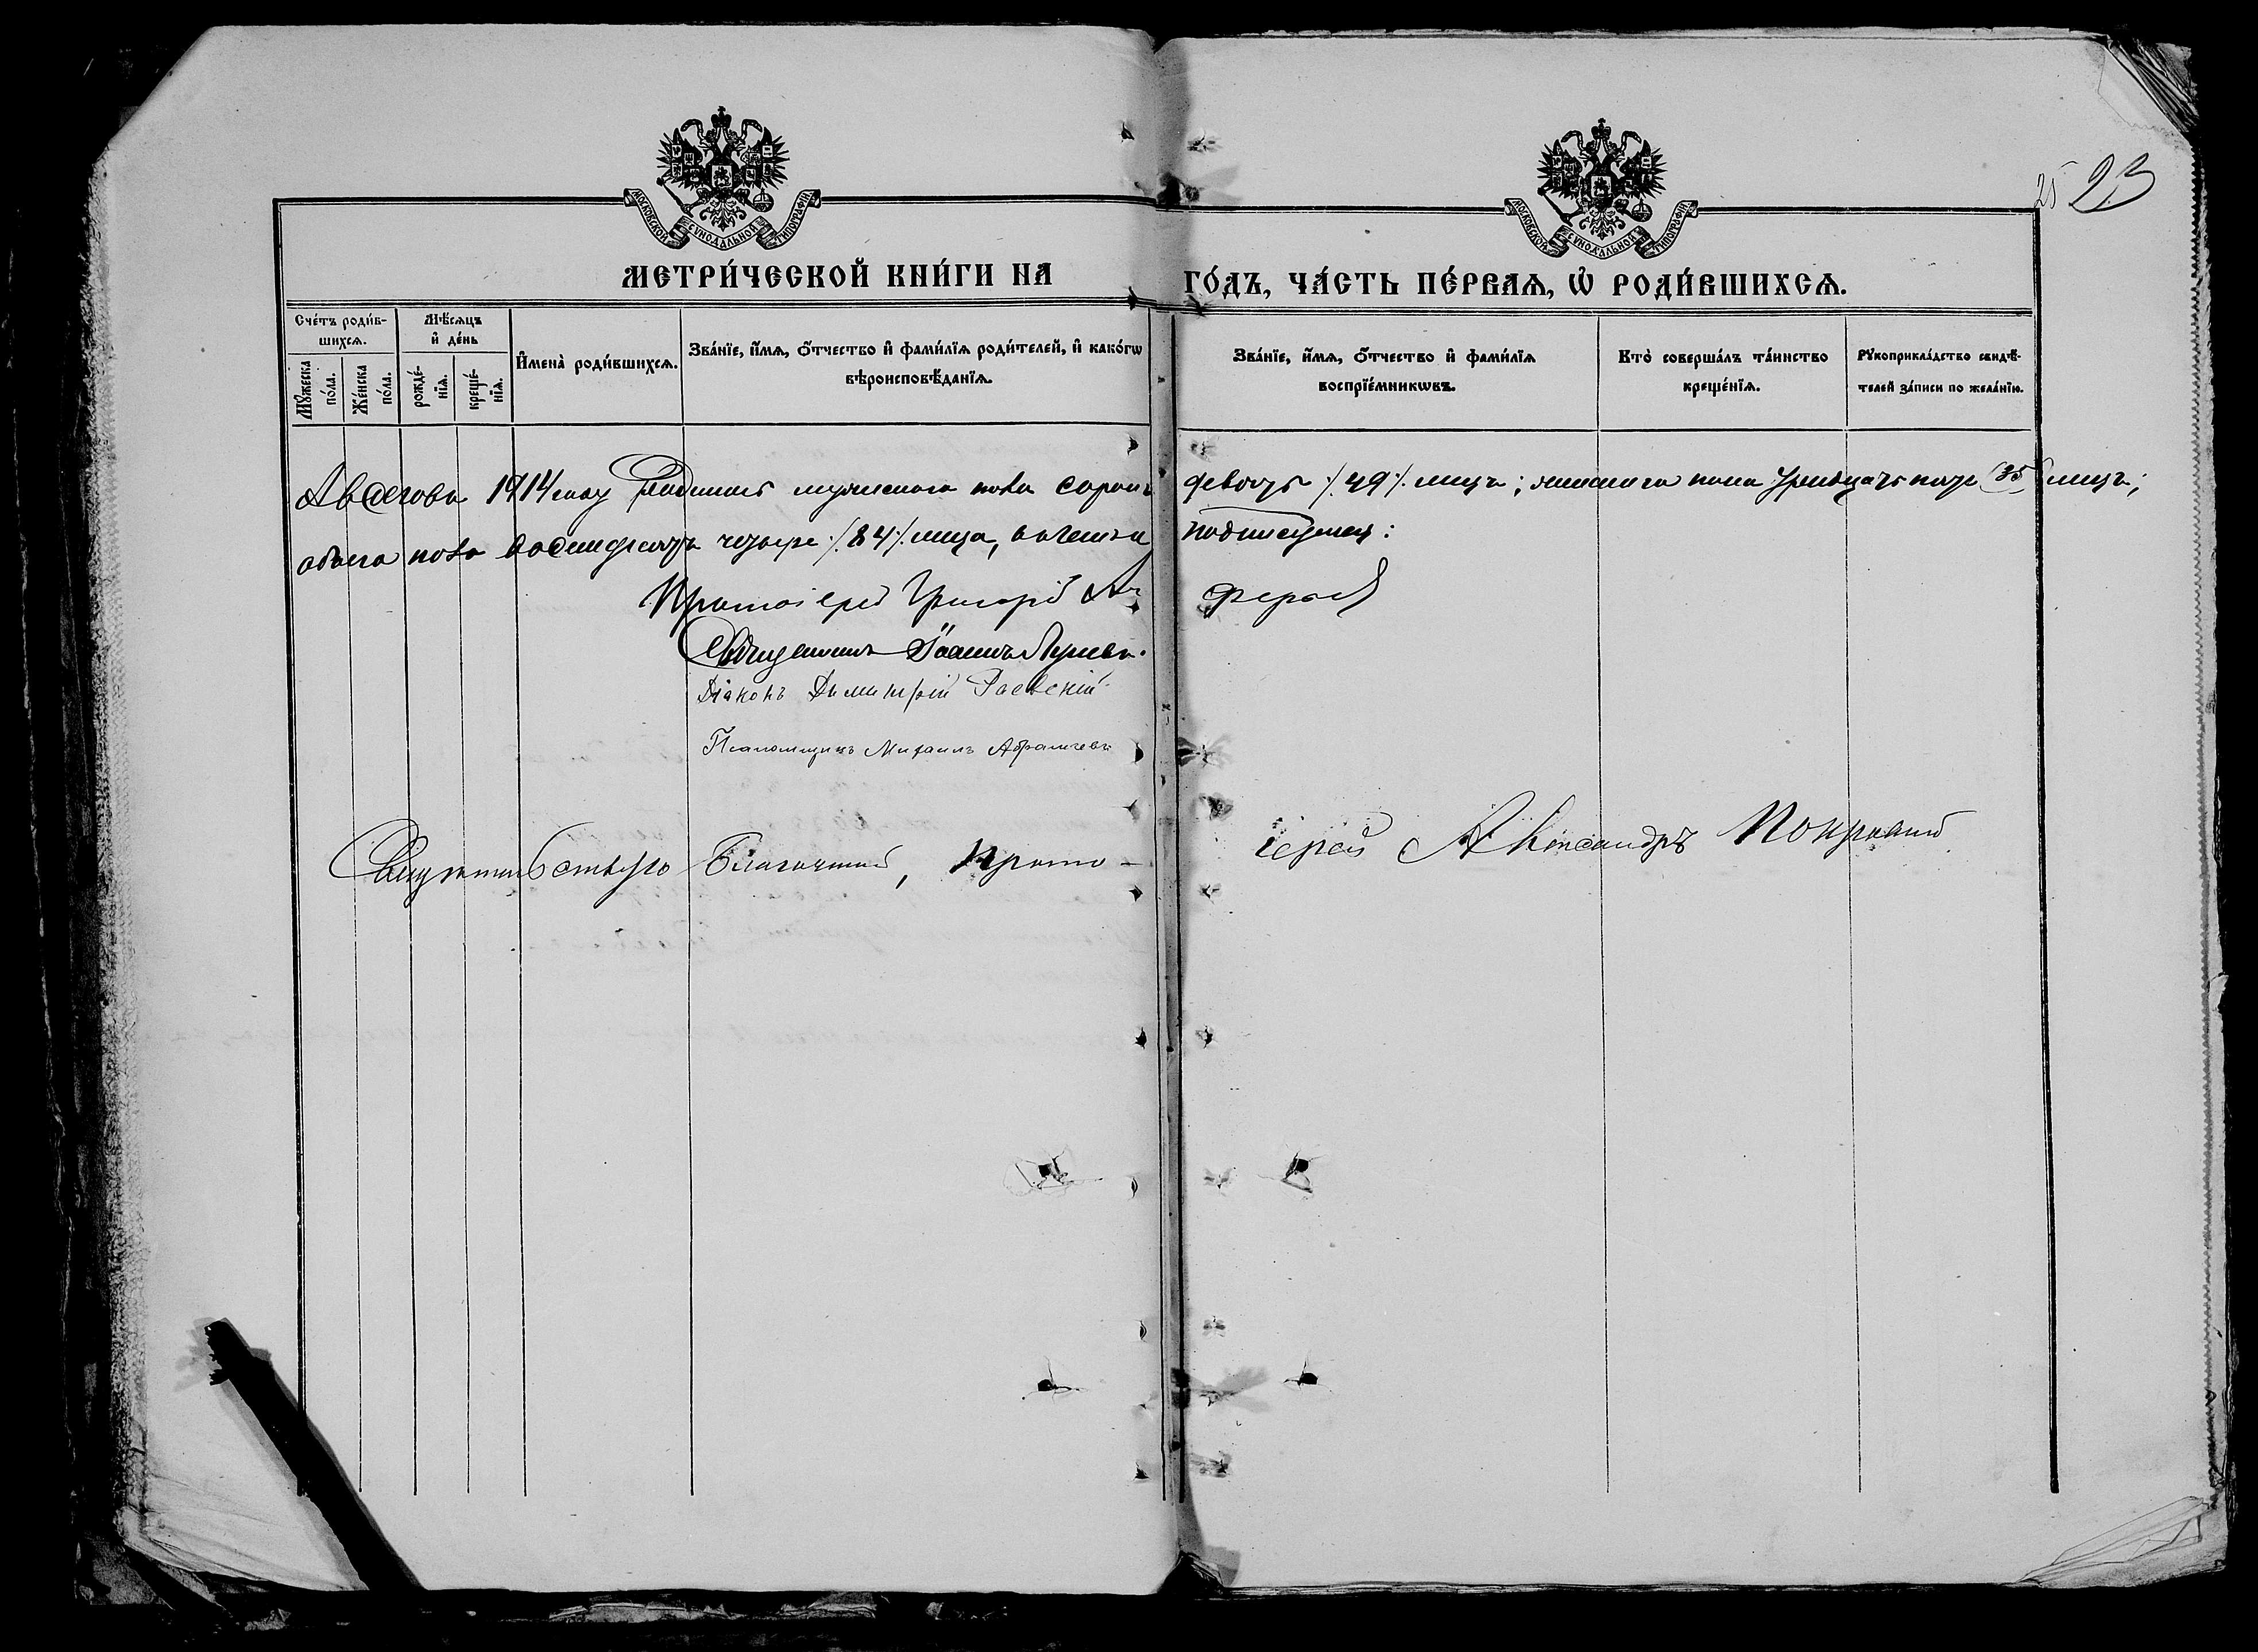 МОСКОВСКОЙ СѴНОДАЛЬНОЙ ТИПОГРАФІИ
МОСКОВСКОЙ СѴНОДАЛЬНОЙ ТИПОГРАФІИ
25 23
МЕТРИ́ЧЕСКОЙ КНИ́ГИ НА ГО́ДЪ, ЧА́СТЬ ПЕ́РВАѦ, Ѽ РОДИ́ВШИХСѦ.
Сче́тъ роди́в-
шихсѧ.
Мѣ́сѧцъ
и҆ де́нь
Мꙋ́жеска
по́ла.
Же́нска
по́ла.
рожде́-
нїѧ.
креще́-
нїѧ.
И҆мена̀ роди́вшихсѧ.
Зва́нїе, и҆́мѧ, ѻ҆́тчество и҆ фами́лїѧ роди́телей, и҆ како́гѡ
вѣроисповѣ́данїѧ.
Зва́нїе, и҆́мѧ, ѻ҆́тчество и҆ фами́лїѧ
воспрїе́мникѡвъ.
Кто̀ соверша́лъ та́инство
креще́нїѧ.
Рꙋкоприкла́дство свидѣ́-
телей за́писи по жела́нїю.
1914 году Родилось мужескаго пола сорокъ девять /.49./ лицъ; женскаго пола тридцать пять (35) лицъ;
обоего пола восемьдесятъ четыре /.84./ лица, въ чемъ и подписуемся:
Протоіерей Григорій
Священникъ Іоаннъ
Діаконъ Димитрій Раевскій
Псаломщикъ Михаилъ Абрамчевъ
Благочинный, Прото-іерей Александръ Покровскій